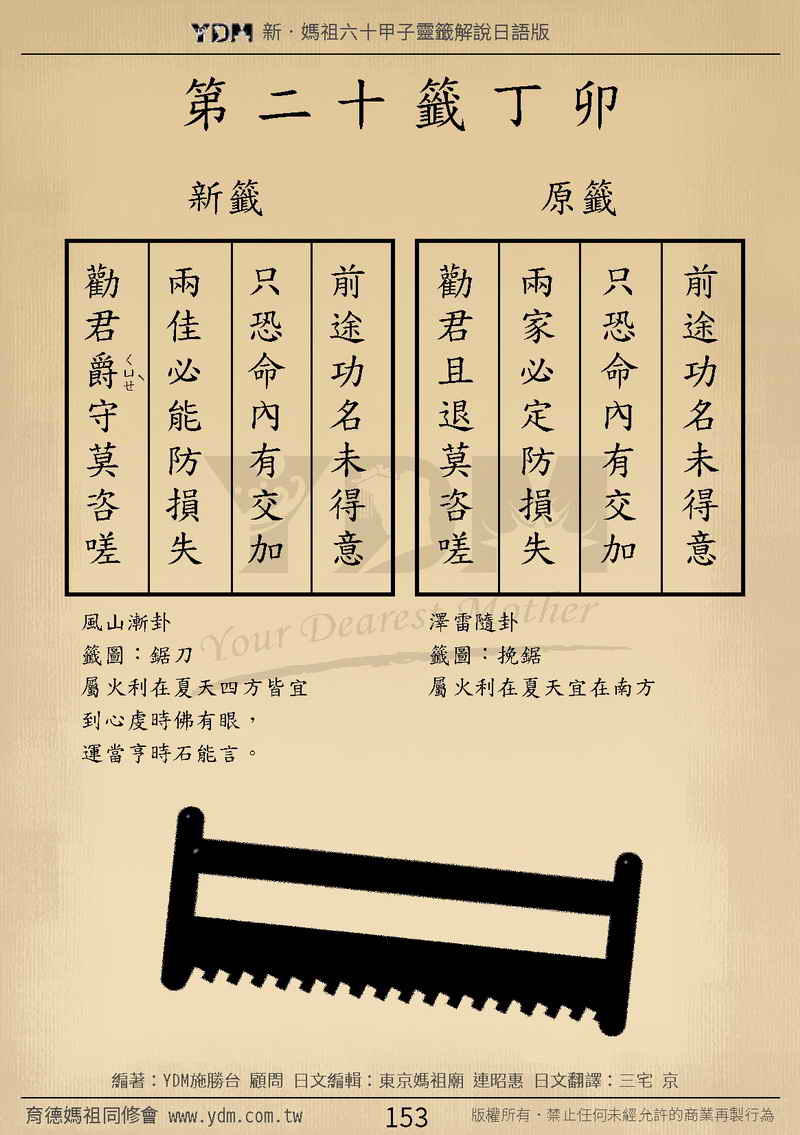 YDM 新．媽祖六十甲子靈籤解說日語版
第二十籤丁卯
原籤
前途功名未得意
只恐命內有交加
兩家必定防損失
勸君且退莫咨嗟
澤雷隨卦
籤圖：挽鋸
屬火利在夏天宜在南方
新籤
前途功名未得意
只恐命內有交加
兩佳必能防損失
勸君爵守莫咨嗟
ㄑㄩㄝˋ
風山漸卦
籤圖：鋸刀
屬火利在夏天四方皆宜
到心虔時佛有眼，
運當亨時石能言。
YDM
Your Dearest Mother
編著：YDM施勝台 顧問 日文編輯：東京媽祖廟 連昭惠 日文翻譯：三宅 京
育德媽祖同修會 www.ydm.com.tw
153
版權所有．禁止任何未經允許的商業再製行為